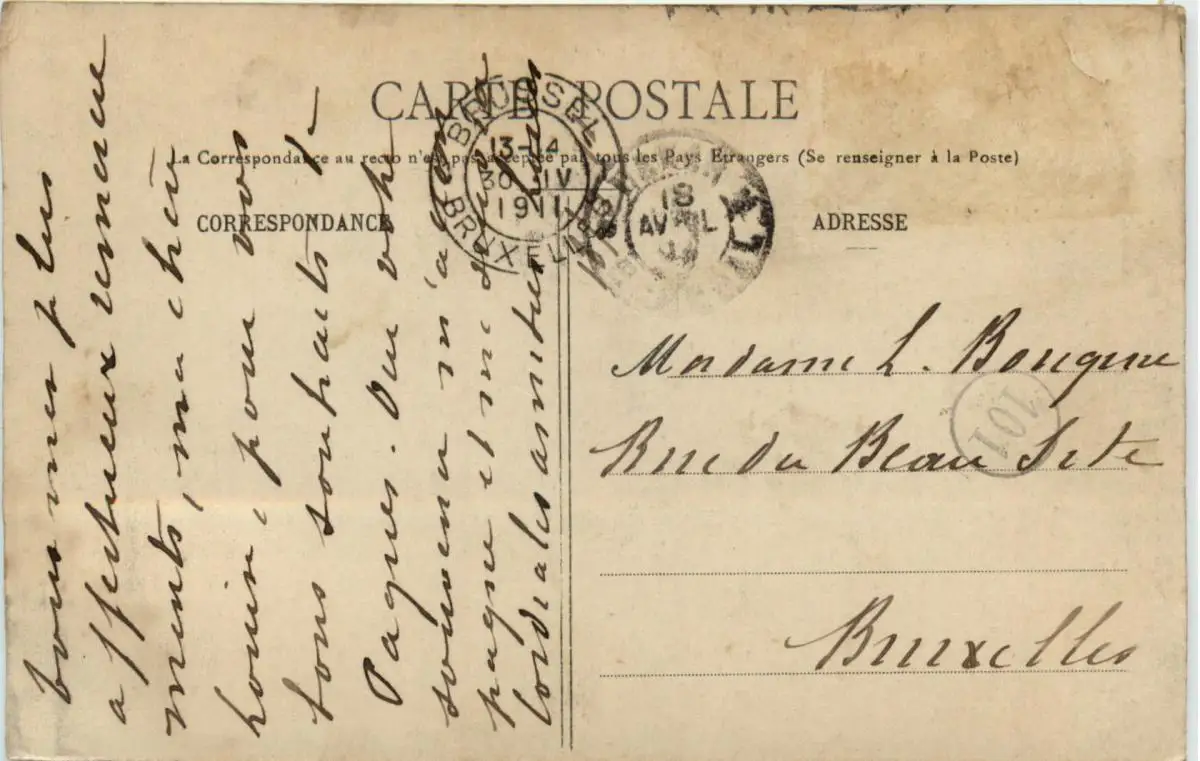 CARTE POSTALE
La Correspondance au recto n'est pas acceptée par tous les Pays Etrangers (Se renseigner à la Poste)
CORRESPONDANCE
ADRESSE
BRUSSEL
13-14
30 IV
1911
BRUXELLES
18
AVRIL
101
Tous mes plus
affectueux remercie
ments, ma chère
pour vos
bons souhaits de
Pâques. Que votre
souvenir m'accom
pagne et me
Cordiales amitiés
Madame L.
Rue du Beau Site
Bruxelles